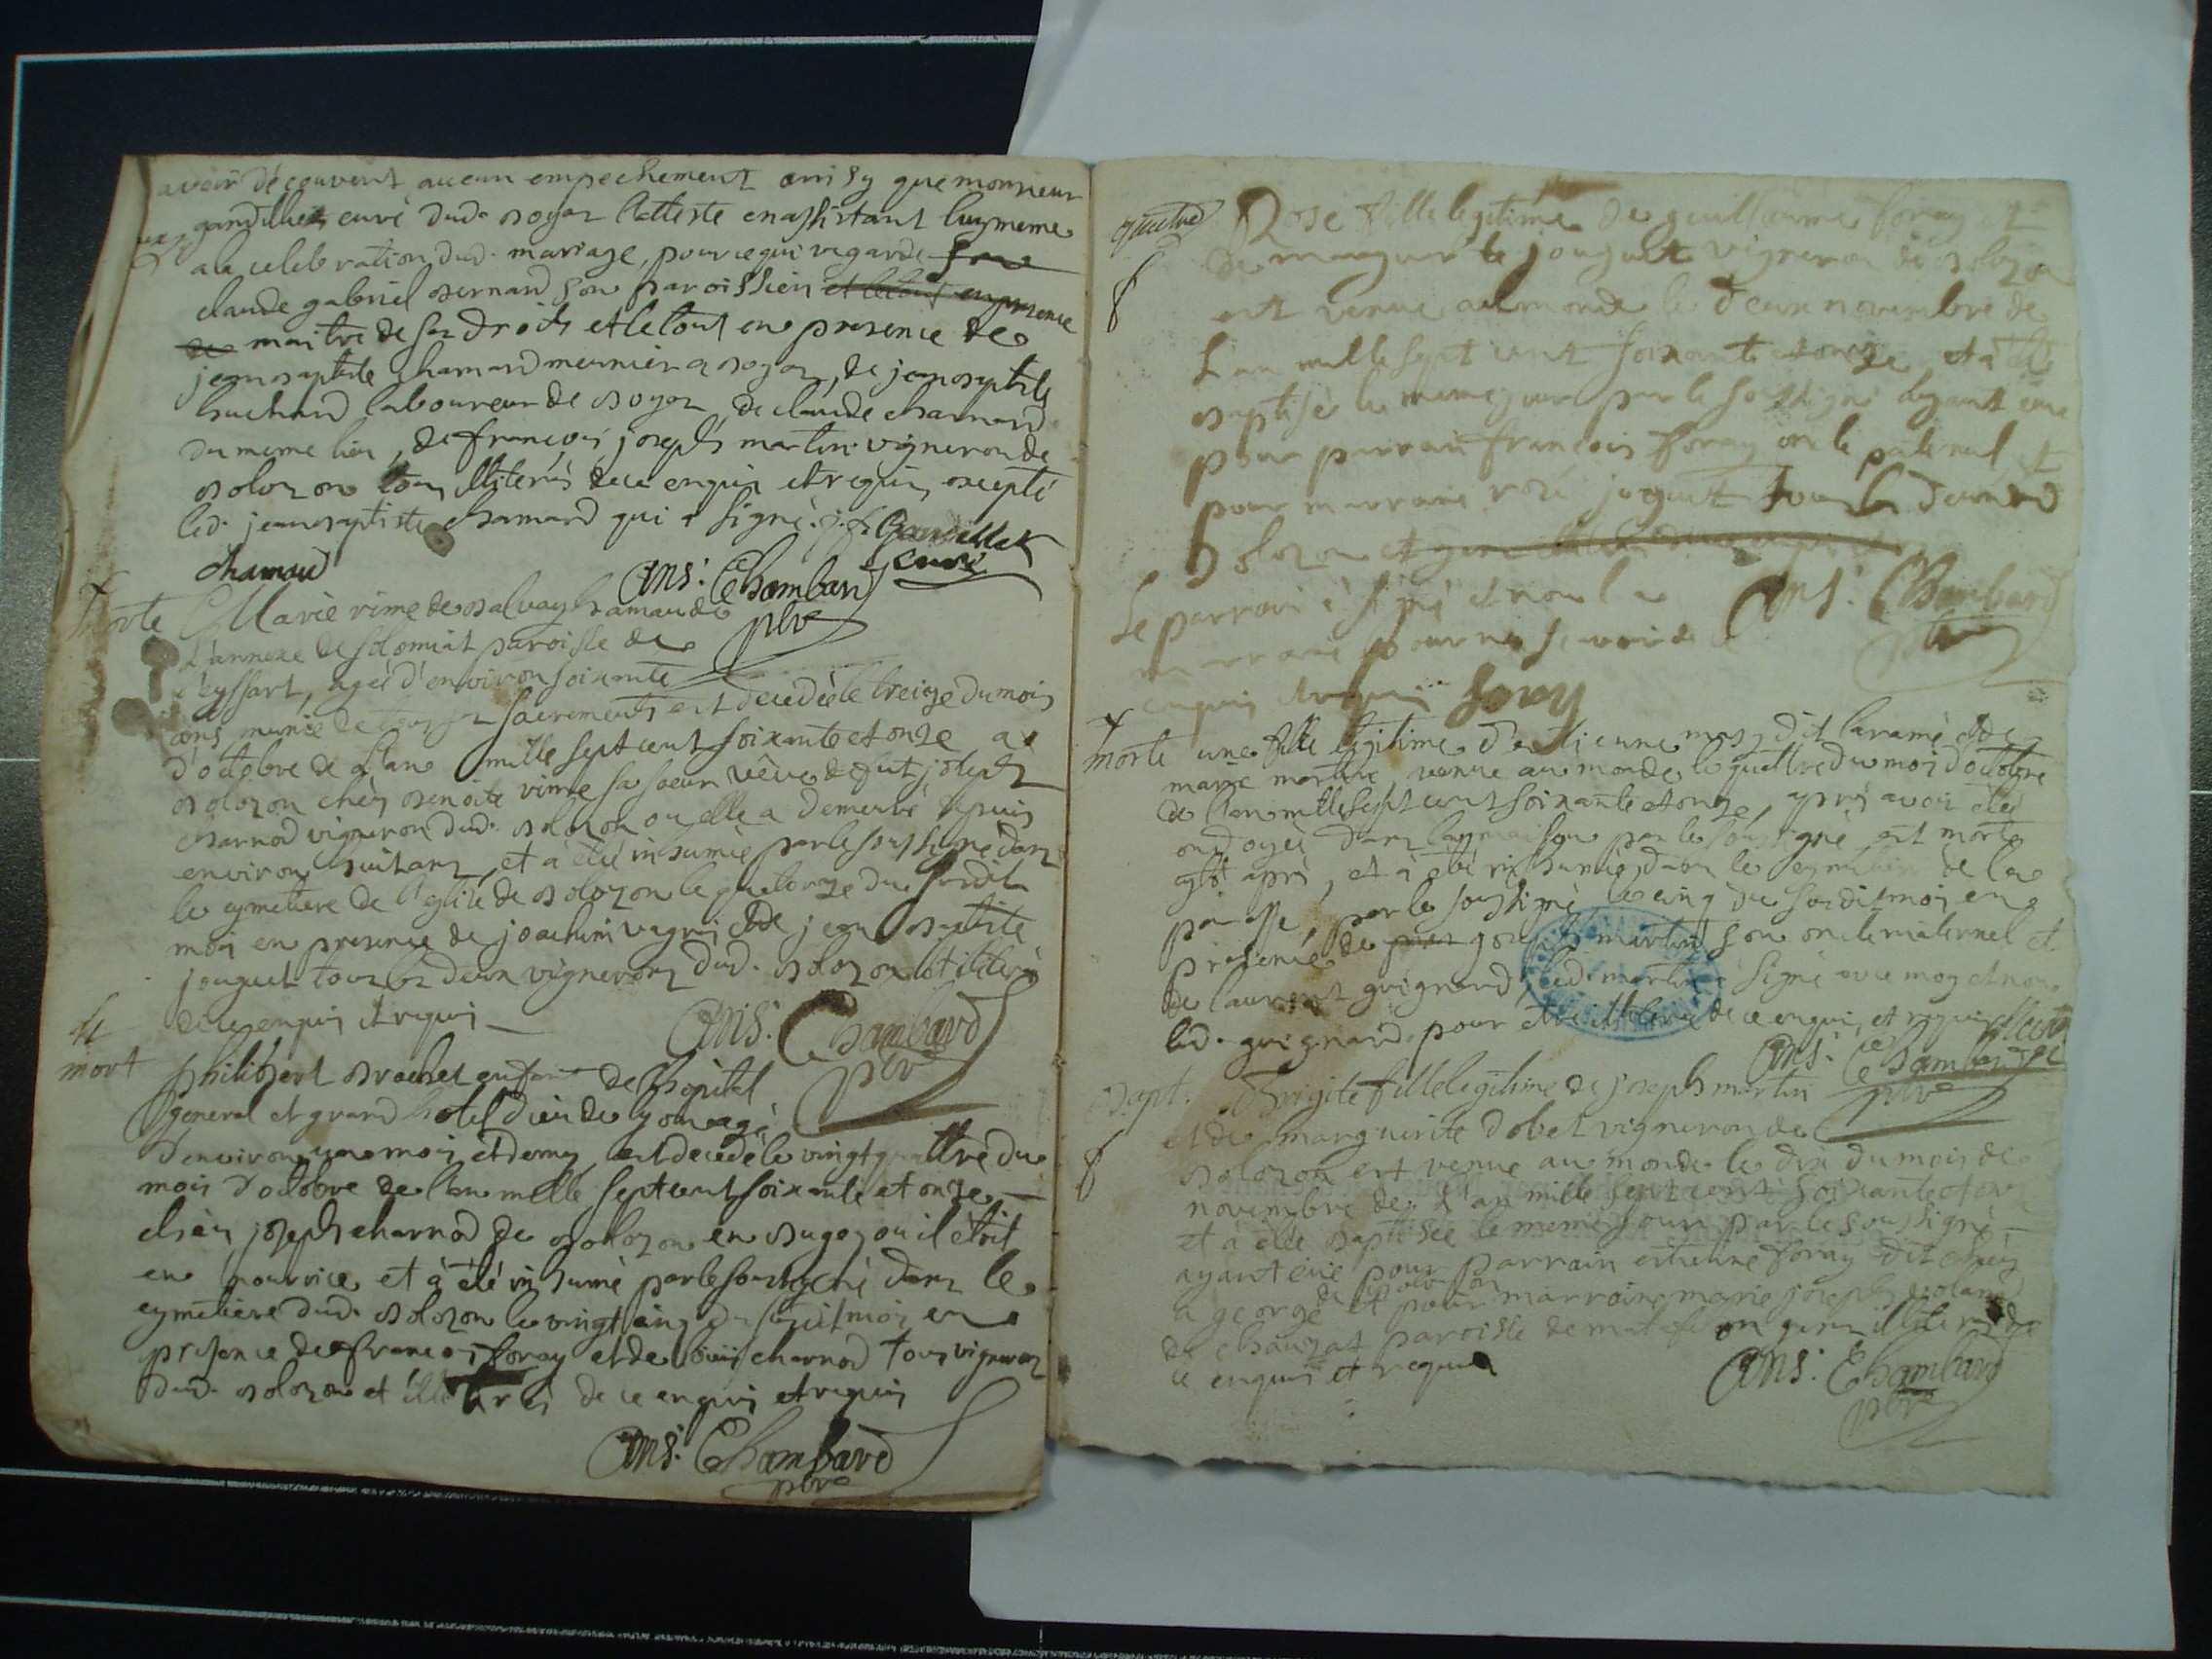 avoir découvert aucun empechement ausisy que monsieur
gandillet curé dud. bozas l'atteste en assistant luy meme
a la celebration dud. mariage, pour ce qui regarde
claude gabriel bernard son paroissien et le tout en presence
de maitre de ses droits et le tout en presence de
jean baptiste chamard meunier a bozas, de jean baptiste
buchard laboureur de bozas, de claude charnard
du meme lieu, de françois joseph martin vigneron de
bolozon tous illiterés de ce enquis et requis, excepté
led. jean baptiste chamard qui a signé. j. f. Gandillet
curé
chamard
ans. Chambard
pbre
morte Marie rime de balvay hamau de
l'annexe de solomiat paroisse de
leyssart, agée d'environ soixante
ans, munie de tous ses sacrements est decedée le treize du mois
d'octobre de l'an mille sept cent soixante et onze a
bolozon chés benoite rime sa soeur veuve de fut joseph
charnod vigneron dud. bolozon ou elle a demeuré depuis
environ huit ans, et à été inhumée par le soussigné dans
le cymetiere de l'eglise de bolozon le quatorze du susdit
mois en presence de joachim vagni et de jean baptiste
jouguet tous les deux vignerons dud. bolozon et illiterés
de ce enquis et requis
ans. Chambard
pbre
mort
philibert brachet enfant de l'hopital
general et grand hotel dieu de lyon agé
d'environ un mois et demy, est decedé le vingt quattre du
mois d'octobre de l'an mille sept cent soixante et onze
chés joseph charnod de bolozon en bugey ou il étoit
en nourrice et à été inhumé par le soussigné dans le
cymetiere dud. bolozon le vingt cinq du susdit mois en
presence de francois foray et de louis charnod tous vignerons
dud. bolozon et illiterés de ce enquis et requis
ans. Chambard
pbre
Rose fille legitime de guillaume foray et
de marguerite jouguet vigneron de bolozon
est venue au monde le deux novembre de
l'an mille sept cent soixante et onze, et a été
baptisé le meme jour par le soussigné ayant eue
pour parrain francois foray oncle paternel et
pour marraine rose joguet tous les deux de
bolozon
Le parrain à signé et non la
marraine pour ne sçavoir de
enquis et requis foray
ans. Chambard
pbre
morte une fille legitime d'etienne masy dit laramé et de
marie martin, venue au monde le quattre du mois d'octobre
de l'an mille sept cent soixante et onze, après avoir été
ondoyée dans la maison par le soussigné est morte
après, et à été inhumée dans le cymetiere de la
paroisse, par le soussigné le cinq du susdit mois en
presence de joseph martin son oncle maternel et
de laurent guignard, led. martin à signé avec moy et non
led. guignard, pour etre illiteré de ce enquis, et requis
ans. Chambard
pbre
bapt. Brigite fille legitime de joseph martin
et de marguerite dobet vigneron de
bolozon est venue au monde le dix du mois de
novembre de l'an mille sept cent soixante et onze
et à été baptisée le meme jour par le soussigné
ayant eue pour parrain etienne foray dit chés
de bolozon
la george et pour marraine marie joseph voland
de chauzat paroisse de matafelon gens illiterés de
ce enquis et requis
ans. Chambard
pbre